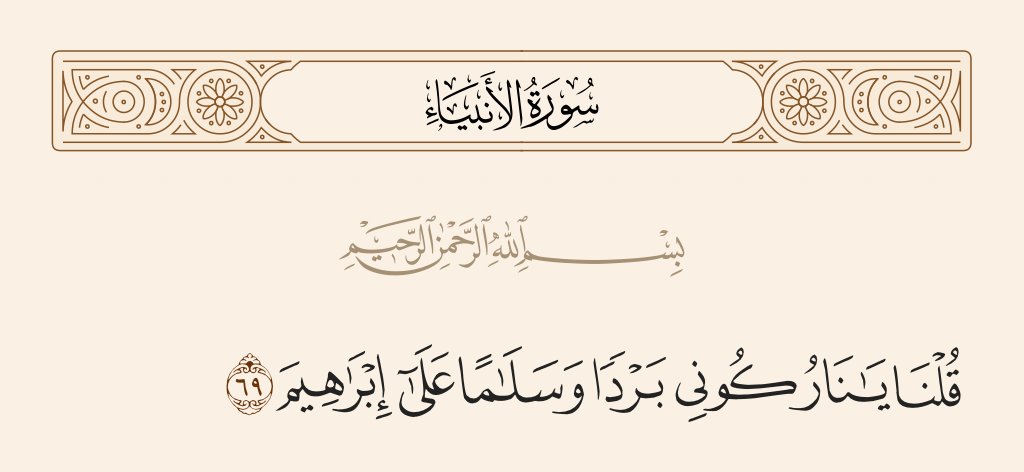 سُورَةُ الأَنبيَاءِ
بِسْمِ ٱللَّهِ ٱلرَّحْمَٰنِ ٱلرَّحِيمِ
قُلْنَا يَـٰنَارُ كُونِى بَرْدًا وَسَلَـٰمًا عَلَىٰٓ إِبْرَٰهِيمَ ٦٩